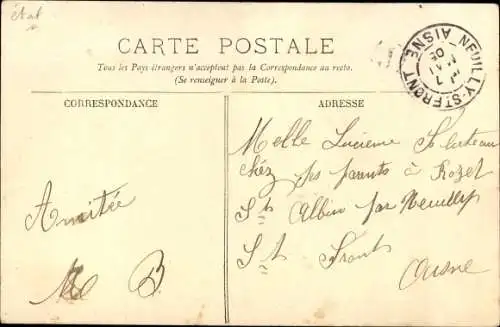 état
CARTE POSTALE
Tous les Pays étrangers n'acceptent pas la Correspondance au recto.
(Se renseigner à la Poste).
CORRESPONDANCE
ADRESSE
NEUILLY-ST-FRONT
AISNE
7
MAI
05
Melle Lucienne
chéz ses parents à Rozet
St Albin par Neuilly
St Front
Aisne
Amitée
B